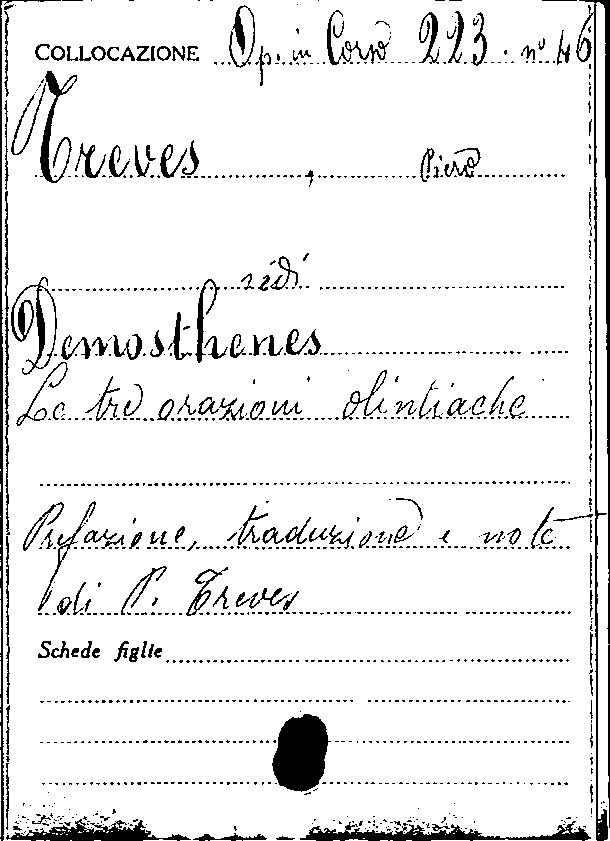 COLLOCAZIONE Op. in Corso 223. nº 46
Treves, Piero
vedi
Demosthenes
Le tre orazioni olintiache
Prefazione, traduzione e note
di P. Treves
Schede figlie